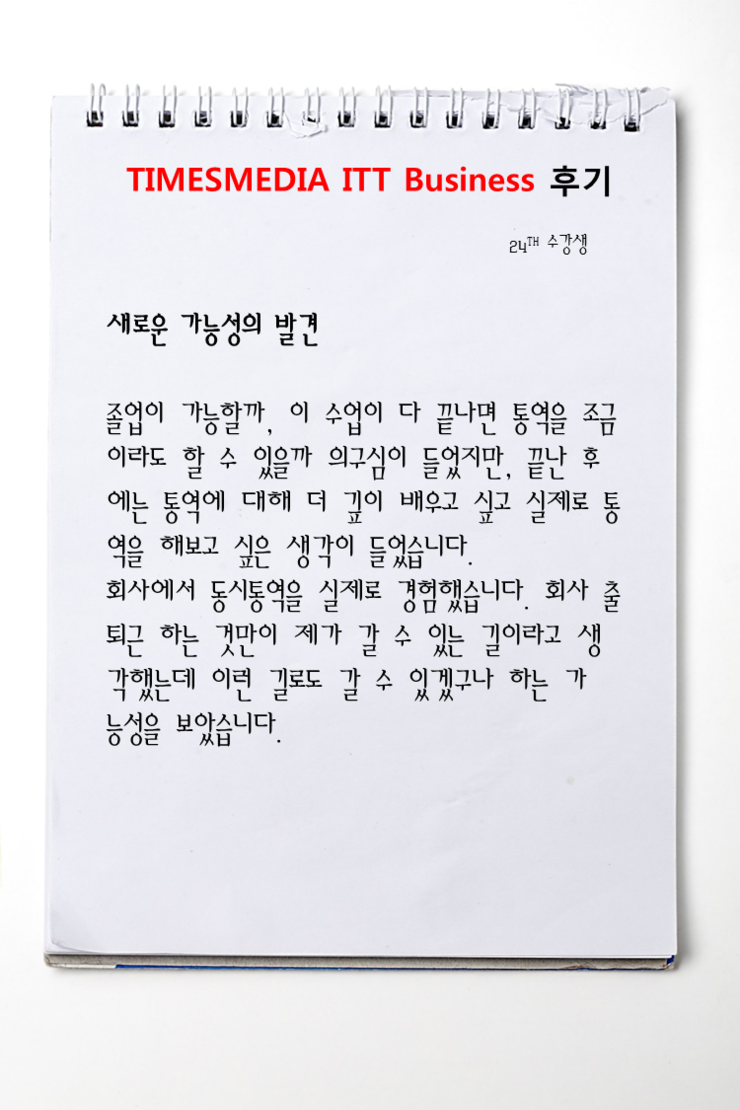 TIMESMEDIA ITT Business 후기
24TH 수강생
새로운 가능성의 발견
졸업이 가능할까, 이 수업이 다 끝나면 통역을 조금
이라도 할 수 있을까 의구심이 들었지만, 끝난 후
에는 통역에 대해 더 깊이 배우고 싶고 실제로 통
역을 해보고 싶은 생각이 들었습니다.
회사에서 동시통역을 실제로 경험했습니다. 회사 출
퇴근 하는 것만이 제가 갈 수 있는 길이라고 생
각했는데 이런 길로도 갈 수 있겠구나 하는 가
능성을 보았습니다.